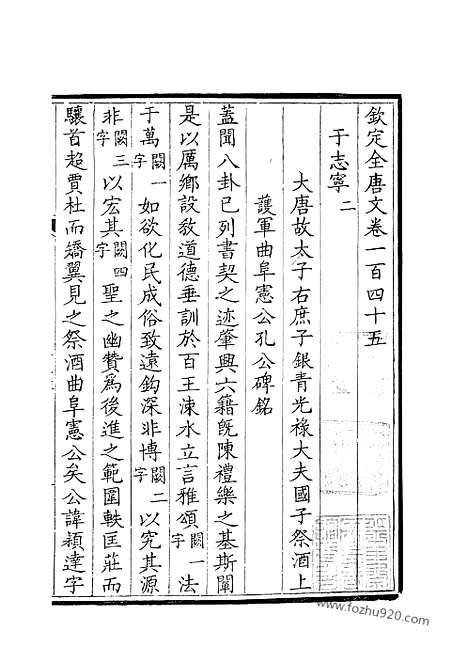 欽定全唐文卷一百四十五
于志寧二
大唐故太子右庶子銀青光祿大夫國子祭酒上
護軍曲阜憲公孔公碑銘
蓋聞八卦已列書契之迹肇興六籍旣陳禮樂之基斯闡
是以厲鄉設敎道德垂訓於百王涑水立言雅頌闕一字法
于萬闕一字如欲化民成俗致遠鈎深非博闕二字以究其源
非闕三字以宏其闕四字聖之幽贊爲後進之範圍軼匡莊而
驤首超賈杜而矯翼見之祭酒曲阜憲公矣公諱穎達字
www.fozhu920.com